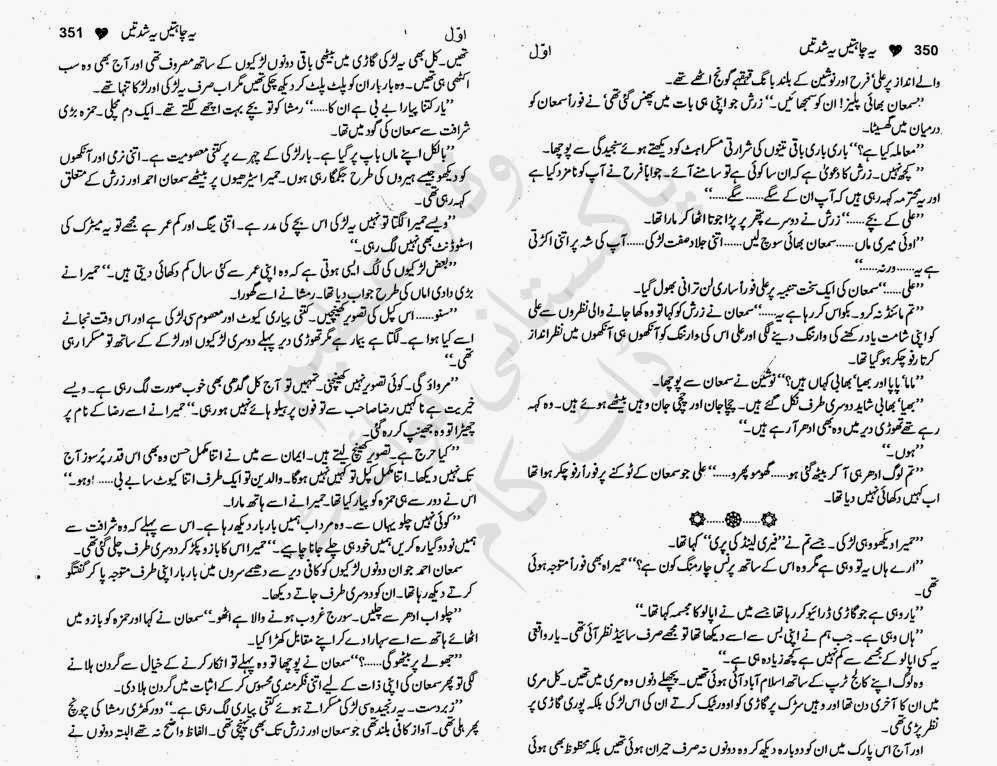 350 ♥ یہ چاہتیں یہ شدتیں اوّل
والے انداز پر علی، فرح اور نوشین کے بلند بانگ قہقہے گونج اٹھے تھے۔
”سمعان بھائی پلیز! ان کو سمجھائیں۔“ زرش جو اپنی ہی بات میں پھنس گئی تھی نے فوراً سمعان کو
درمیان میں گھسیٹا۔
”معاملہ کیا ہے؟“ باری باری باقی تینوں کی شرارتی مسکراہٹ کو دیکھتے ہوئے سنجیدگی سے پوچھا۔
”کچھ نہیں۔ زرش کا دعویٰ ہے کہ ان سا کوئی ہے تو سامنے آئے۔ جواباً فرح نے آپ کو نامزد کیا ہے
اور یہ محترمہ کہہ رہی ہیں کہ آپ ان کے سگے...... سگے......“
”علی کے بچے......“ زرش نے دوسرے پتھر پر پڑا جوتا اٹھا کر مارا تھا۔
”اوئی میری ماں...... سمعان بھائی سوچ لیں...... اتنی جلاد صفت لڑکی...... آپ کی شہ پر اتنی اکڑتی
ہے یہ...... ورنہ......“
”علی......“ سمعان کی ایک سخت تنبیہ پر علی فوراً ساری لن ترانی بھول گیا۔
”تم مائنڈ نہ کرو۔ بکواس کر رہا ہے یہ......“ سمعان نے زرش کو کہا تو وہ کھا جانے والی نظروں سے علی
کو اپنی شامت یاد رکھنے کی وارننگ دینے لگی اور علی اس کی وارننگ کو آنکھوں ہی آنکھوں میں نظر انداز
کرتا رفو چکر ہو گیا تھا۔
”ماما، پاپا اور بھیا، بھابی کہاں ہیں؟“ نوشین نے سمعان سے پوچھا۔
”بھیا، بھابی شاید دوسری طرف نکل گئے ہیں۔ چچا جان اور چچی جان وہیں بیٹھے ہوئے ہیں۔ وہ کہہ
رہے تھے تھوڑی دیر میں وہ بھی ادھر آ رہے ہیں۔“
”ہوں۔“
”تم لوگ ادھر ہی آ کر بیٹھ گئی ہو...... گھومو پھرو......“ علی جو سمعان کے ٹوکنے پر فوراً رفو چکر ہوا تھا
اب کہیں دکھائی نہیں دیا تھا۔
”حمیرا دیکھو وہی لڑکی۔ جسے تم نے ”فیری لینڈ کی پری“ کہا تھا۔
”ارے ہاں یہ تو وہی ہے مگر وہ اس کے ساتھ پرنس چارمنگ کون ہے؟“ حمیرا بھی فوراً متوجہ ہوئی
تھی۔
”یار وہی ہے جو گاڑی ڈرائیو کر رہا تھا جسے میں نے اپالو کا مجسمہ کہا تھا۔
”ہاں وہی ہے۔ جب ہم نے اپنی بس سے اسے دیکھا تھا تو مجھے صرف سائیڈ نظر آئی تھی۔ یار واقعی
یہ کسی اپالو کے مجسمے سے کم نہیں ہے کچھ زیادہ ہی ہے۔“
وہ لوگ اپنے کالج ٹرپ کے ساتھ اسلام آباد آئی ہوئی تھیں۔ پچھلے دنوں وہ مری میں تھیں۔ کل مری
میں ان کا آخری دن تھا اور وہیں سڑک پر گاڑی کو اوور ٹیک کرتے ان کی اس لڑکی بلکہ پوری گاڑی پر
نظر پڑی تھی۔
اور آج اس پارک میں ان کو دوبارہ دیکھ کر وہ دونوں نہ صرف حیران ہوئی تھیں بلکہ محظوظ بھی ہوئی
یہ چاہتیں یہ شدتیں ♥ 351 اوّل
تھیں۔ کل بھی یہ لڑکی گاڑی میں بیٹھی باقی دونوں لڑکیوں کے ساتھ مصروف تھی اور آج بھی وہ سب
اکٹھی ہی تھیں۔ وہ بار بار ان کو پلٹ پلٹ کر دیکھ چکی تھیں مگر اب صرف یہ لڑکی اور لڑکا تنہا تھے۔
”یار کتنا پیارا بے بی ہے ان کا......“ رمشا کو تو بچے بہت اچھے لگتے تھے۔ ایک دم مچلی۔ حمزہ بڑی
شرافت سے سمعان کی گود میں تھا۔
”بالکل اپنے ماں باپ پر گیا ہے۔ یار لڑکی کے چہرے پر کتنی معصومیت ہے۔ اتنی نرمی اور آنکھوں
کو دیکھو جیسے ہیروں کی طرح جگمگا رہی ہوں۔ حمیرا سیڑھیوں پر بیٹھے سمعان احمد اور زرش کے متعلق
کہہ رہی تھی۔
”ویسے حمیرا لگتا تو نہیں یہ لڑکی اس بچے کی مدر ہے۔ اتنی ینگ اور کم عمر ہے مجھے تو یہ میٹرک کی
اسٹوڈنٹ بھی نہیں لگ رہی۔“
”بعض لڑکیوں کی لُک ایسی ہوتی ہے کہ وہ اپنی عمر سے کئی سال کم دکھائی دیتی ہیں۔“ حمیرا نے
بڑی دادی اماں کی طرح جواب دیا تھا۔ رمشا نے اسے گھورا۔
”سنو...... اس کپل کی تصویر کھینچیں۔ کتنی پیاری کیوٹ اور معصوم سی لڑکی ہے اور اس وقت نجانے
اسے کیا ہوا ہے۔ لگتا ہے بیمار ہے مگر تھوڑی دیر پہلے دوسری لڑکیوں اور لڑکے کے ساتھ تو مسکرا رہی
تھی۔“
”مرواؤ گی۔ کوئی تصویر نہیں کھینچنی۔ تمہیں تو آج کل گدھی بھی خوب صورت لگ رہی ہے۔ ویسے
خیریت ہے نا کہیں رضا صاحب سے تو فون پر ہیلو ہائے نہیں ہو رہی۔“ حمیرا نے اسے رضا کے نام پر
چھیڑا تو وہ جھینپ کر رہ گئی۔
”کیا حرج ہے۔ تصویر کھینچ لیتے ہیں۔ ایمان سے میں نے اتنا مکمل حسن وہ بھی اس قدر پُرسوز آج
تک نہیں دیکھا۔ اتنا مکمل کپل تو کہیں نہیں ہوگا۔ والدین تو ایک طرف اتنا کیوٹ سا بے بی...... اوہو۔“
اس نے دور سے ہی حمزہ کو پیار کیا تھا۔ حمیرا نے اسے ہاتھ مارا۔
”کوئی نہیں چلو یہاں سے۔ وہ مرد اب ہمیں بار بار دیکھ رہا ہے۔ اس سے پہلے کہ وہ شرافت سے
ہمیں نو دو گیارہ کریں ہمیں خود ہی چلے جانا چاہیے۔“ حمیرا اس کا بازو پکڑ کر دوسری طرف چلی گئی تھی۔
سمعان احمد جو ان دونوں لڑکیوں کو کافی دیر سے دھیمے سروں میں بار بار اپنی طرف متوجہ پا کر گفتگو
کرتے دیکھ رہا تھا۔ ان کو دوسری طرف جاتے دیکھا۔
”چلو اب ادھر سے چلیں۔ سورج غروب ہونے والا ہے اٹھو۔“ سمعان نے کہا اور حمزہ کو بازو میں
اٹھائے ہاتھ سے اسے سہارا دے کر اپنے مقابل کھڑا کیا۔
”جھولے پر بیٹھو گی......؟“ سمعان نے پوچھا تو وہ پہلے تو انکار کرنے کے خیال سے گردن ہلانے
لگی تو پھر سمعان کی اپنی ذات کے لیے اتنی فکرمندی محسوس کر کے اثبات میں گردن ہلا دی۔
”زبردست۔ یہ رنجیدہ سی لڑکی مسکراتے ہوئے کتنی پیاری لگ رہی ہے۔“ دور کھڑی رمشا کی چونچ
پھر ہلی تھی۔ آواز کافی بلند تھی جو سمعان اور زرش تک بھی پہنچی تھی۔ الفاظ واضح نہ تھے البتہ دونوں نے